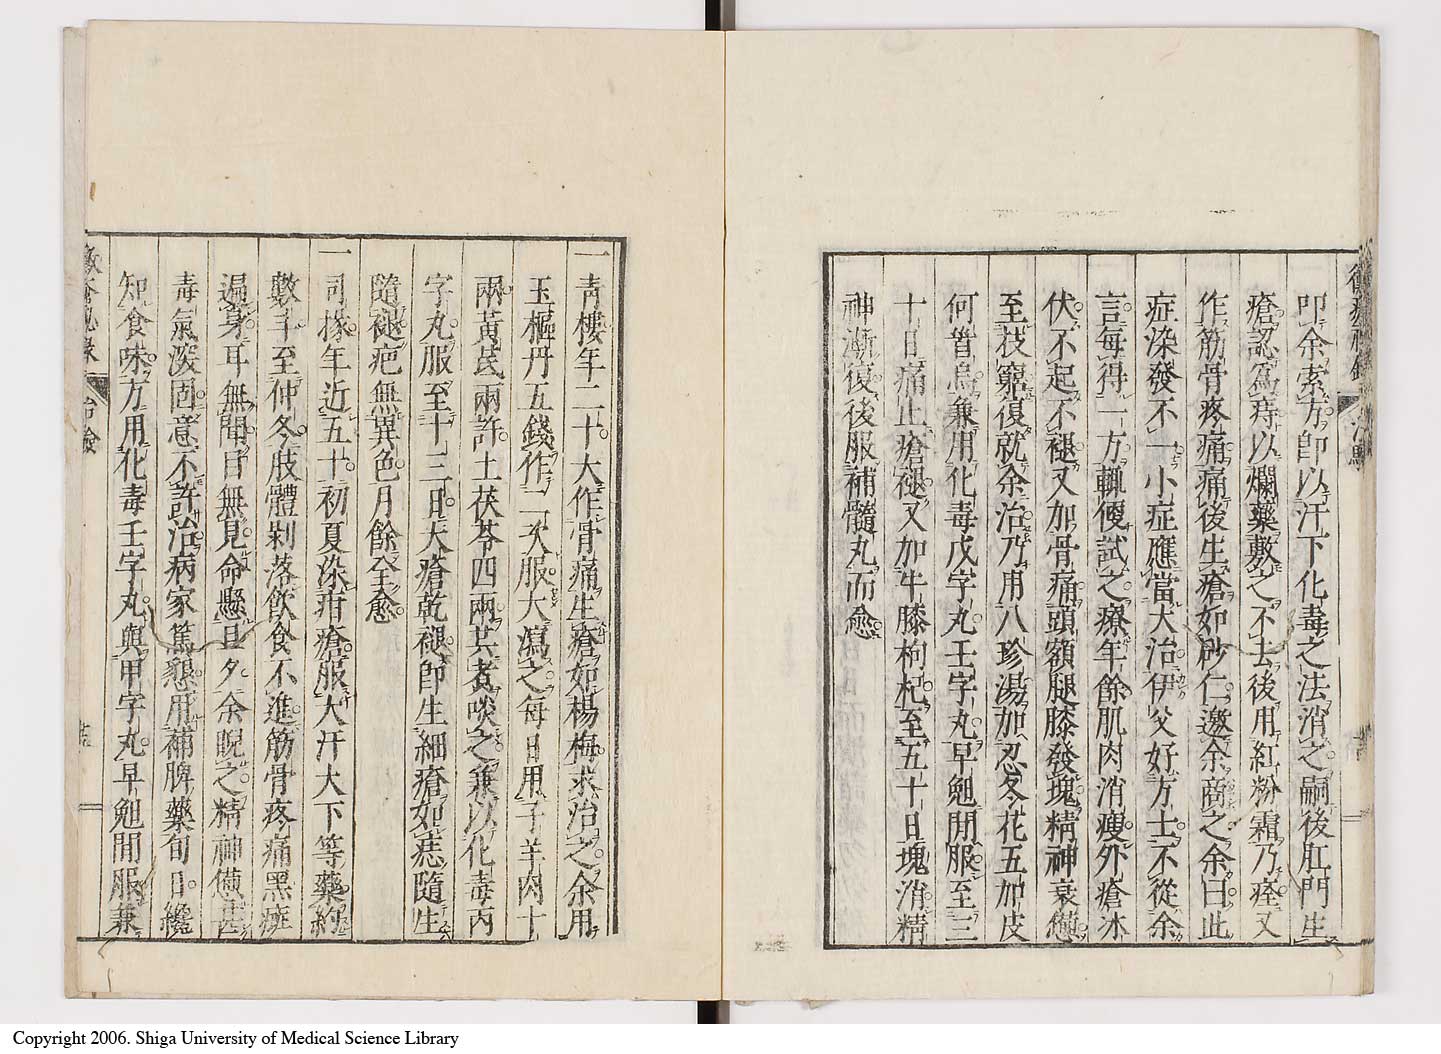 叩余索方卽以汗下化毒之法消之嗣後肛門生
瘡認寫痔以爛藥敷之不去後用紅粉霜乃痊又
作筋骨疼痛痛後生瘡如砂仁邀余商之余曰此
症染發不一小症應當大治伊父好方士不從余
言每得一方輒便試之療年餘肌肉消瘦外瘡沐
伏不起不褪又加骨痛頭額腿膝發塊精神衰憊
至技窮復就余治乃用八珍湯加忍冬花五加皮
何首烏兼用化毒戊字丸壬字丸早勉閒服至三
十日痛止瘡褪又加牛膝枸杞至五十日塊消精
神漸復後服補髓丸而愈
一青樓年二十大作骨痛生瘡如楊梅求治之余用
玉樞丹五錢作二次服大瀉之每日用子羊肉十
兩黃芪兩許土茯苓四兩共煮啖之兼以化毒丙
字丸服至十三日大瘡乾褪卽生細瘡如痣隨生
隨褪疤無異色月餘全愈
一司掾年近五十初夏染疳瘡服大汗大下等藥約
數十至仲冬肢體剝落飲食不進筋骨疼痛黑癍
遍身耳無聞目無見命懸旦夕余睨之精神憊甚
毒氣深固意不許治病家篤懇用補脾藥旬日纔
知食味方用化毒壬字丸與甲字丸早勉閒服兼
治驗